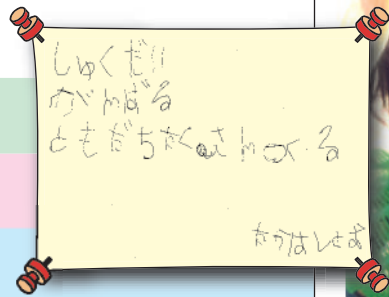 しゅくだい
がんばる
ともだちたくさんつくる
たかはし